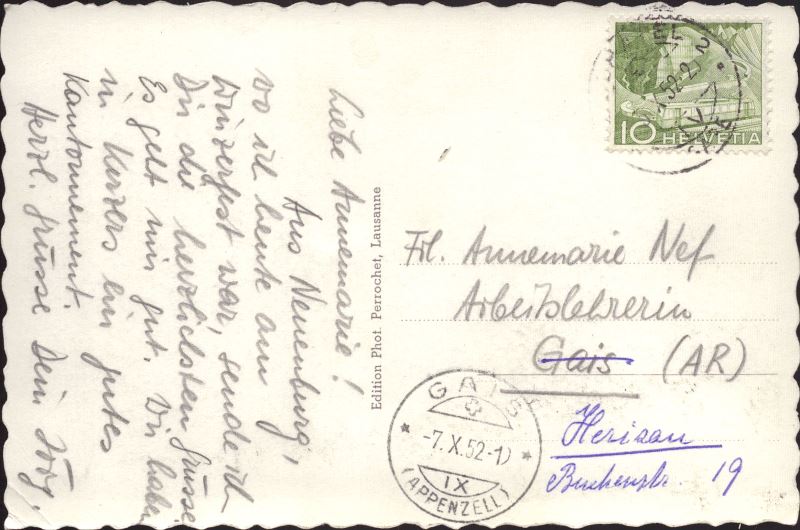 Liebe Annemarie!
Aus Neuenburg,
wo ich heute am
Winzerfest war, sende ich
Dir die herzlichsten Grüsse.
Es geht mir gut. Wir haben
in Kerzers ein gutes
Kantonnement.
Herzl. Grüsse Dein Jörg.
Edition Phot. Perrochet, Lausanne
10 HELVETIA
Frl. Annemarie Nef
Arbeitslehrerin
Gais (AR)
Herisau
Buchenstr. 19
GAIS
-7.X.52-1
IX
(APPENZELL)